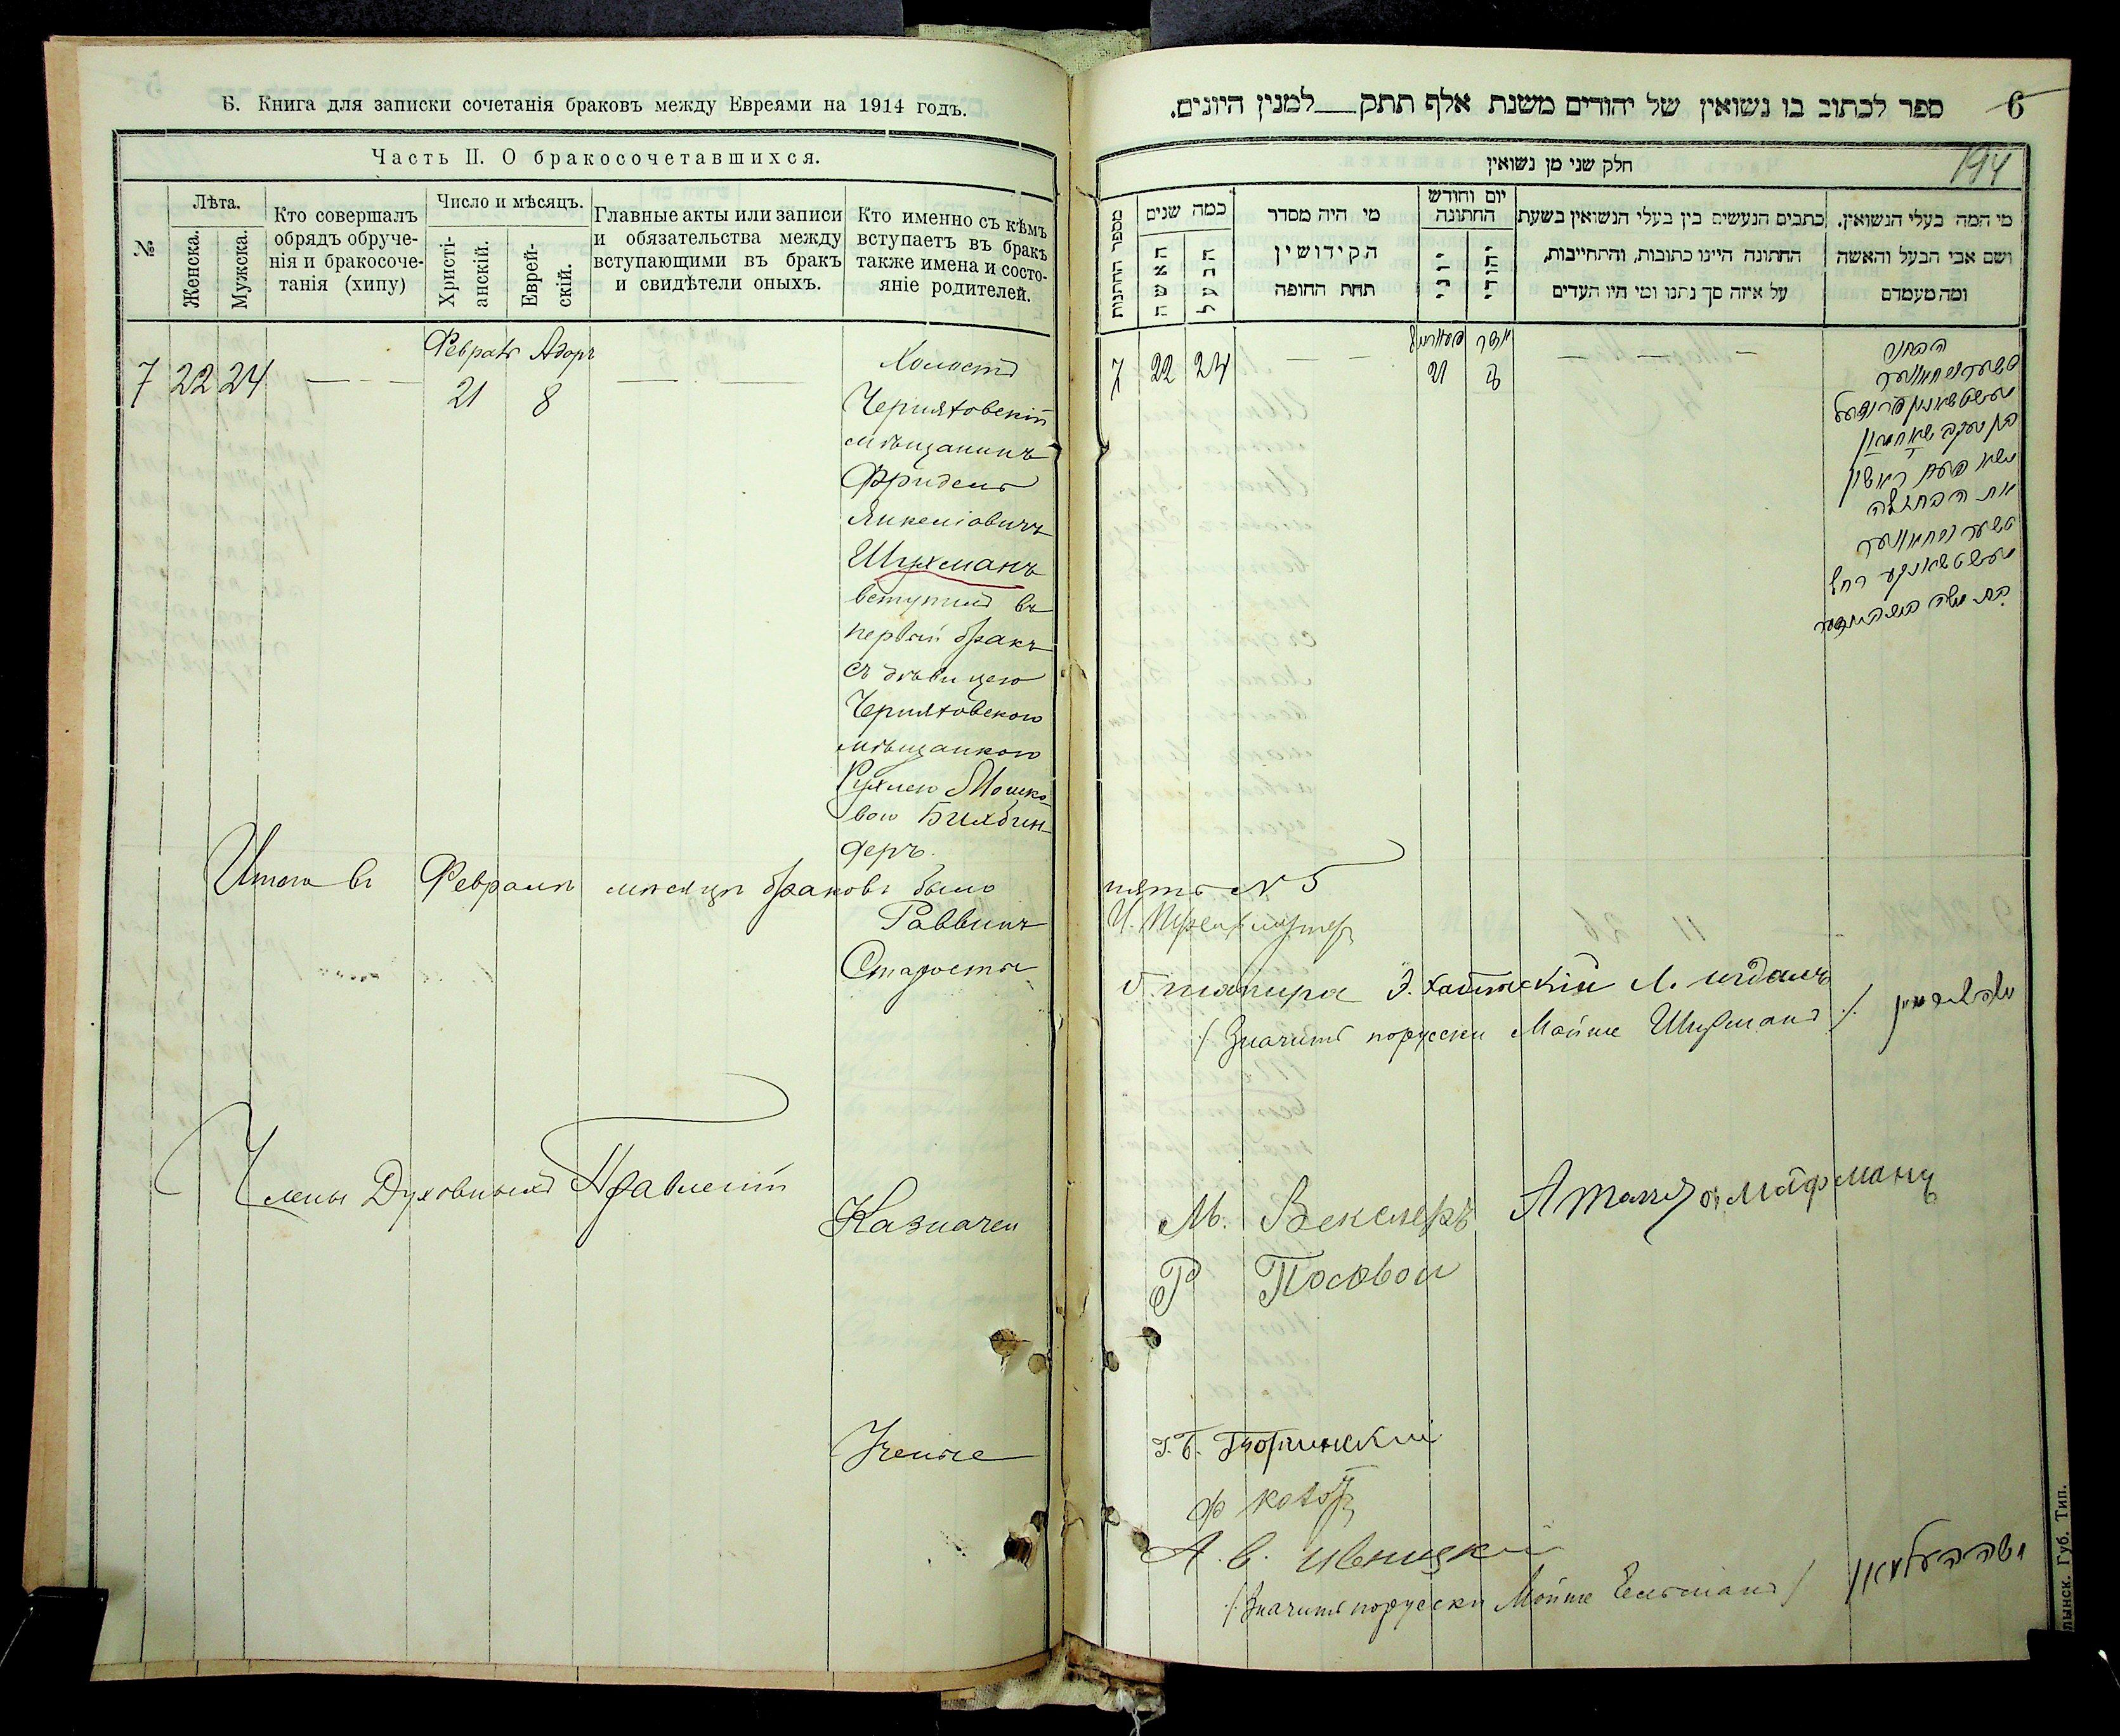 Б. Книга для записки сочетанія браковъ между Евреями на 1914 годъ.
Часть II. О бракосочетавшихся.
№
Лѣта.
Женска.
Мужска.
Кто совершалъ
обрядъ обруче-
нія и бракосоче-
танія (хипу)
Число и мѣсяцъ.
Христі-
анскій.
Еврей-
скій.
Главные акты или записи
и обязательства между
вступающими въ бракъ
и свидѣтели оныхъ.
Кто именно съ кѣмъ
вступаетъ въ бракъ
также имена и состо-
яніе родителей.
7 22 24 — — — Февраль 21 Адаръ 8 — — —
Холостъ
Черняховскій
мѣщанинъ
Фридель
Янкеліовичъ
Шухманъ
вступилъ въ
первый бракъ
съ дѣвицею
Черняховскою
мѣщанкою
Рухлею Мошко-
вою Бихбин-
деръ.
Итого въ Февралѣ мѣсяцѣ браковъ было
Раввинъ
Старосты
Члены Духовныхъ Правленій
Казначеи
Ученые
6
ספר לכתוב בו נשואין של יהודים משנת אלף תתק___למנין היונים.
194
חלק שני מן נשואין
מספר החתנות
כמה שנים
האשה
הבעל
מי היה מסדר
הקידושין
תחת החופה
יום וחודש
החתונה
יוני
יהודי
כתבים הנעשים בין בעלי הנשואין בשעת
החתונה היינו כתובות, והתחייבות,
על איזה סך נתנו ומי היו העדים
מי המה בעלי הנשואין.
ושם אבי הבעל והאשה
ומה מעמדם
7 22 24 — — 21 אדר 8 — — —
הבחור
נשא פעם ראשון
את הבתולה
пять № 5
Э. Хаётскій
/ Значитъ порусски Мойше Шухманъ /
М. Векслеръ
Р Посовой
А. В. Ивницкій
/ Значитъ порусски Мойше Гельманъ /
משה העלמאן
Губ. Тип.